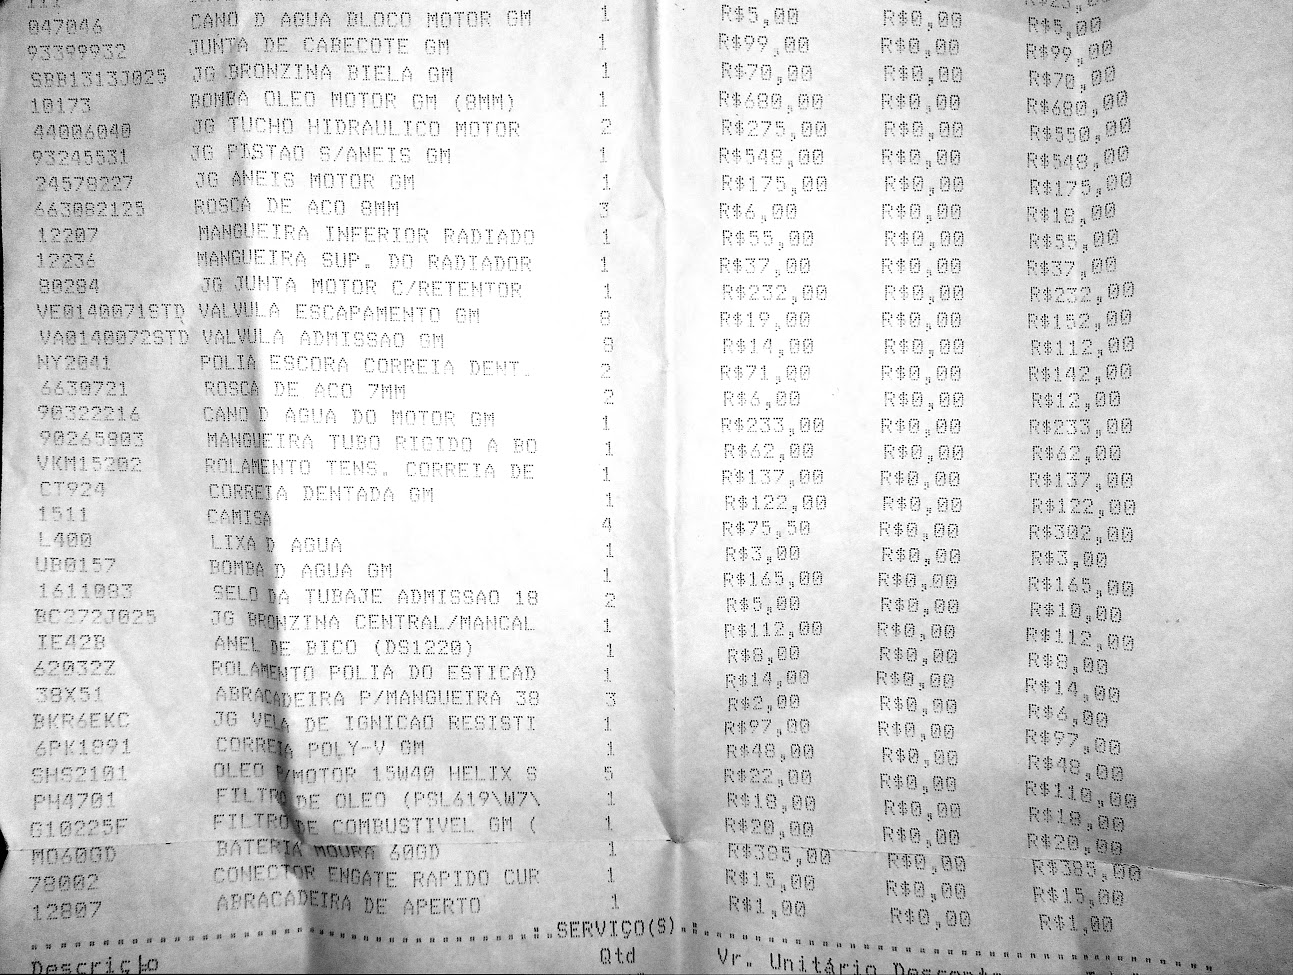 047046 CANO D AGUA BLOCO MOTOR GM 1 R$5,00 R$0,00 R$5,00
93399932 JUNTA DE CABECOTE GM 1 R$99,00 R$0,00 R$99,00
SBB1313J025 JG BRONZINA BIELA GM 1 R$70,00 R$0,00 R$70,00
10173 BOMBA OLEO MOTOR GM (8MM) 1 R$680,00 R$0,00 R$680,00
44006040 JG TUCHO HIDRAULICO MOTOR 2 R$275,00 R$0,00 R$550,00
93245531 JG PISTAO S/ANEIS GM 1 R$548,00 R$0,00 R$548,00
24578227 JG ANEIS MOTOR GM 1 R$175,00 R$0,00 R$175,00
663082125 ROSCA DE ACO 8MM 3 R$6,00 R$0,00 R$18,00
12207 MANGUEIRA INFERIOR RADIADO 1 R$55,00 R$0,00 R$55,00
12236 MANGUEIRA SUP. DO RADIADOR 1 R$37,00 R$0,00 R$37,00
80284 JG JUNTA MOTOR C/RETENTOR 1 R$232,00 R$0,00 R$232,00
VE0140071STD VALVULA ESCAPAMENTO GM 8 R$19,00 R$0,00 R$152,00
VA0140072STD VALVULA ADMISSAO GM 8 R$14,00 R$0,00 R$112,00
NY2041 POLIA ESCORA CORREIA DENT. 2 R$71,00 R$0,00 R$142,00
6630721 ROSCA DE ACO 7MM 2 R$6,00 R$0,00 R$12,00
90322216 CANO D AGUA DO MOTOR GM 1 R$233,00 R$0,00 R$233,00
90265803 MANGUEIRA TUBO RIGIDO A BO 1 R$62,00 R$0,00 R$62,00
VKM15202 ROLAMENTO TENS. CORREIA DE 1 R$137,00 R$0,00 R$137,00
CT924 CORREIA DENTADA GM 1 R$122,00 R$0,00 R$122,00
1511 CAMISA 4 R$75,50 R$0,00 R$302,00
L400 LIXA D AGUA 1 R$3,00 R$0,00 R$3,00
UB0157 BOMBA D AGUA GM 1 R$165,00 R$0,00 R$165,00
1611083 SELO DA TUBAJE ADMISSAO 18 2 R$5,00 R$0,00 R$10,00
BC272J025 JG BRONZINA CENTRAL/MANCAL 1 R$112,00 R$0,00 R$112,00
IE42B ANEL DE BICO (DS1220) 1 R$8,00 R$0,00 R$8,00
62032Z ROLAMENTO POLIA DO ESTICAD 1 R$14,00 R$0,00 R$14,00
38X51 ABRACADEIRA P/MANGUEIRA 38 3 R$2,00 R$0,00 R$6,00
BKR6EKC JG VELA DE IGNICAO RESISTI 1 R$97,00 R$0,00 R$97,00
6PK1891 CORREIA POLY-V GM 1 R$48,00 R$0,00 R$48,00
SHS2101 OLEO P/MOTOR 15W40 HELIX S 5 R$22,00 R$0,00 R$110,00
PH4701 FILTRO DE OLEO (PSL619\W7\ 1 R$18,00 R$0,00 R$18,00
G10225F FILTRO DE COMBUSTIVEL GM ( 1 R$20,00 R$0,00 R$20,00
MO60GD BATERIA MOURA 60GD 1 R$385,00 R$0,00 R$385,00
78002 CONECTOR ENGATE RAPIDO CUR 1 R$15,00 R$0,00 R$15,00
12807 ABRACADEIRA DE APERTO 1 R$1,00 R$0,00 R$1,00
SERVIÇO(S)
Qtd Vr. Unitário